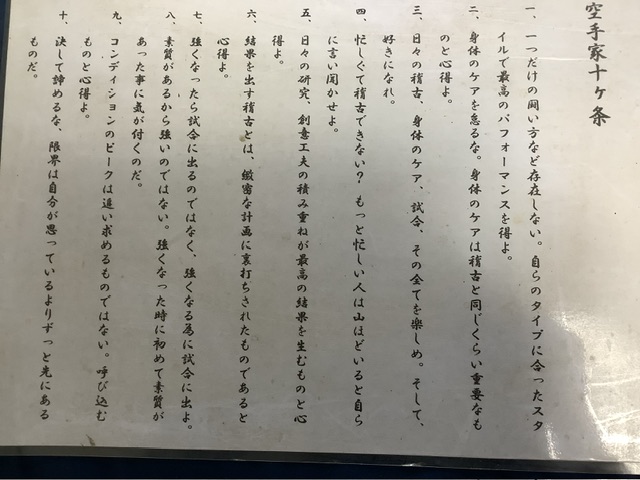 空手家十ヶ条
一、一つだけの闘い方など存在しない。自らのタイプに合ったスタ
イルで最高のパフォーマンスを得よ。
二、身体のケアを怠るな。身体のケアは稽古と同じくらい重要なも
のと心得よ。
三、日々の稽古、身体のケア、試合、その全てを楽しめ。そして、
好きになれ。
四、忙しくて稽古できない？もっと忙しい人は山ほどいると自ら
に言い聞かせよ。
五、日々の研究、創意工夫の積み重ねが最高の結果を生むものと心
得よ。
六、結果を出す稽古とは、緻密な計画に裏打ちされたものであると
心得よ。
七、強くなったら試合に出るのではなく、強くなる為に試合に出よ。
八、素質があるから強いのではない。強くなった時に初めて素質が
あった事に気が付くのだ。
九、コンディションのピークは追い求めるものではない。呼び込む
ものと心得よ。
十、決して諦めるな、限界は自分が思っているよりずっと先にある
ものだ。